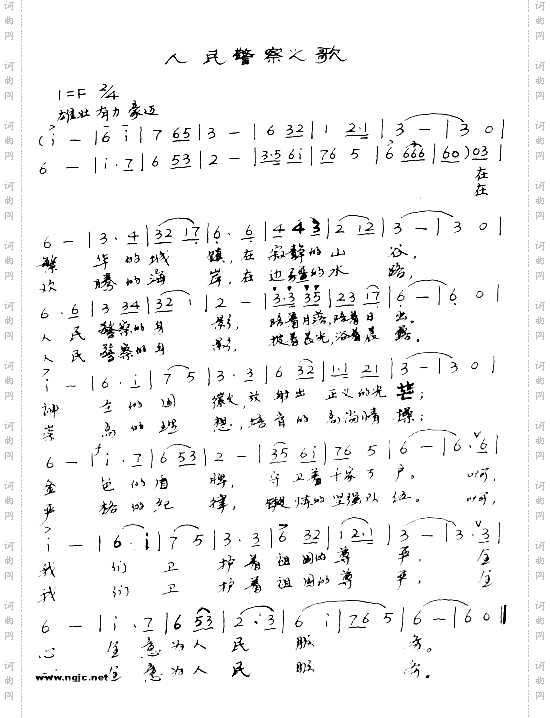 人民警察之歌
1=F 2/4
雄壮 有力 豪迈
(i — | 6 i | 7 65 | 3 — | 6 32 | 1 2·1 | 3 — | 3 0 |
6 — | i·7 | 6 53 | 2 — | 3·5 6i | 76 5 | 6 666 | 60) 03 |
在
在
6 — | 3·4 | 32 17 | 6·6 | 4 43 | 2 12 | 3 — | 3 0 |
繁 华的城 镇,在寂静的山 谷,
欢 腾的海 岸,在边疆的水 路,
6·6 | 3 34 | 32 i | 2 — | 3·3 35 | 23 17 | 6 — | 6 0 |
人民警察的身 影, 陪着月落,陪着日 出。
人民警察的身 影, 披着星光,浴着晨 露。
i — | 6·i | 7 5 | 3·3 | 6 32 | 1·1 21 | 3 — | 3 0 |
神 圣的国 徽,放射出 正义的光 芒;
崇 高的理 想,培育的高尚情 操;
6 — | i·7 | 6 53 | 2 — | 35 6i | 76 5 | 6 — | 6·6 |
金 色的盾 牌, 守卫着千家万 户。 啊,
严 格的纪 律, 锻炼的坚强队 伍。 啊,
i — | 6·i | 7 5 | 3·3 | 6 32 | 1 2·1 | 3 — | 3·3 |
我 们 卫 护着祖国的尊 严, 全
我 们 卫 护着祖国的尊 严, 全
6 — | i·7 | 6 53 | 2·3 | 6 i | 76 5 | 6 — | 6 0 ‖
心 全意为人民 服 务。
心 全意为人民 服 务。
www.ngjc.net
词曲网 词曲网 词曲网 词曲网 词曲网 词曲网 词曲网
词曲网 词曲网 词曲网 词曲网 词曲网 词曲网 词曲网